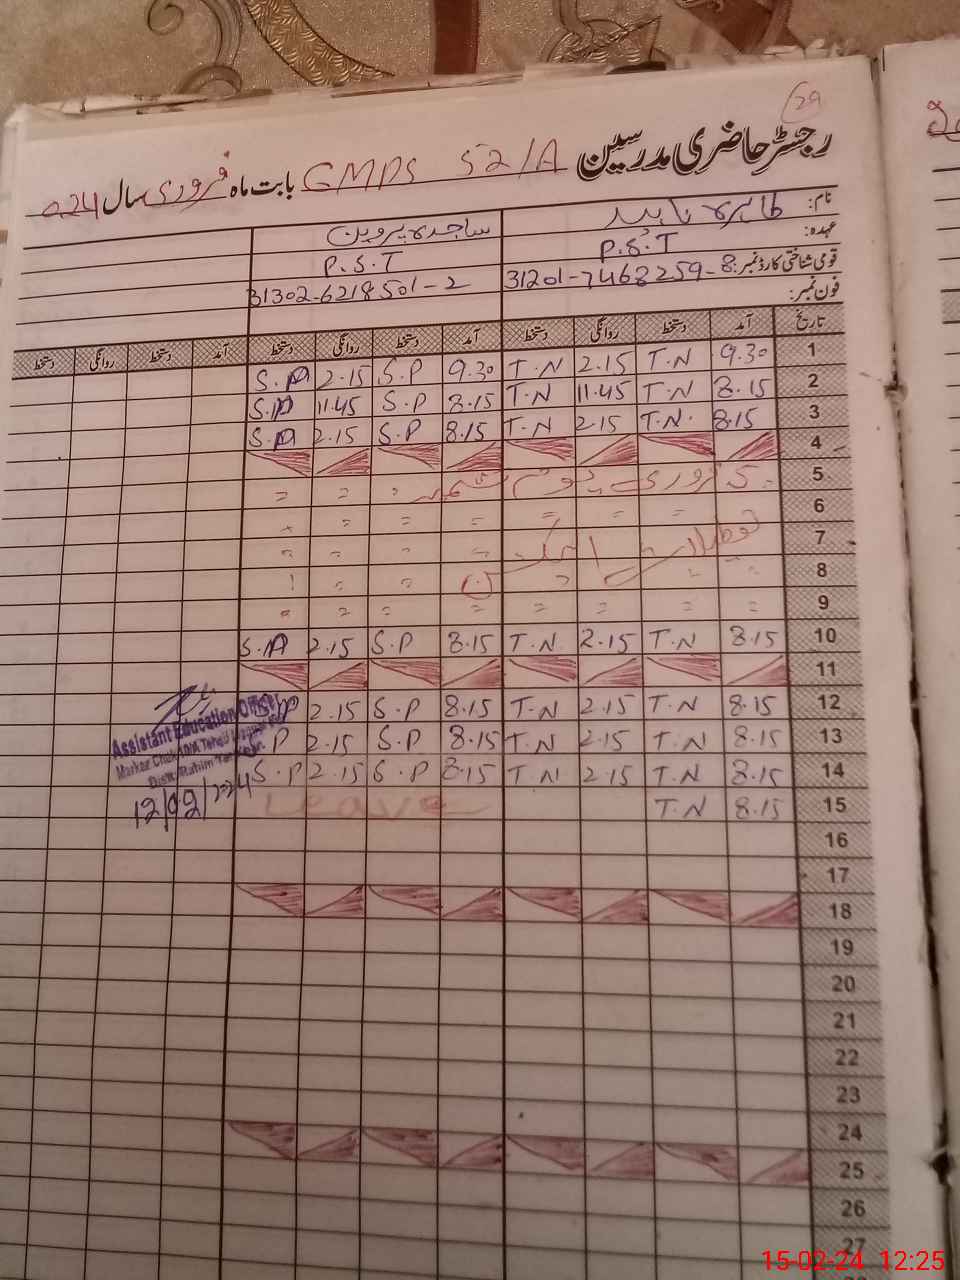 29
رجسٹر حاضری مدرسین GMPS 52/A بابت ماہ فروری سال 024
نام: طاہرہ ناہید ساجدہ پروین
عہدہ: P.S.T P.S.T
قومی شناختی کارڈ نمبر: 31201-7468259-8 31302-6218501-2
فون نمبر:
تاریخ آمد دستخط روانگی دستخط آمد دستخط روانگی دستخط آمد دستخط روانگی دستخط
1 9.30 T.N 2.15 T.N 9.30 S.P 2.15 S.P
2 8.15 T.N 11.45 T.N 8.15 S.P 11.45 S.P
3 8.15 T.N. 2.15 T.N 8.15 S.P 2.15 S.P
4
5 5 فروری یوم کشمیر
6
7 تعطیلات
8
9
10 8.15 T.N 2.15 T.N 8.15 S.P 2.15 S.P
11
12 8.15 T.N 2.15 T.N 8.15 S.P 2.15 S.P
13 8.15 T.N 2.15 T.N 8.15 S.P 2.15 S.P
14 8.15 T.N 2.15 T.N 8.15 S.P 2.15 S.P
15 8.15 T.N Leave
Assistant Education Officer
Markaz Chak Tehsil
Distt. Rahim Yar Khan
12/02/2024
16
17
18
19
20
21
22
23
24
25
26
27
15-02-24 12:25